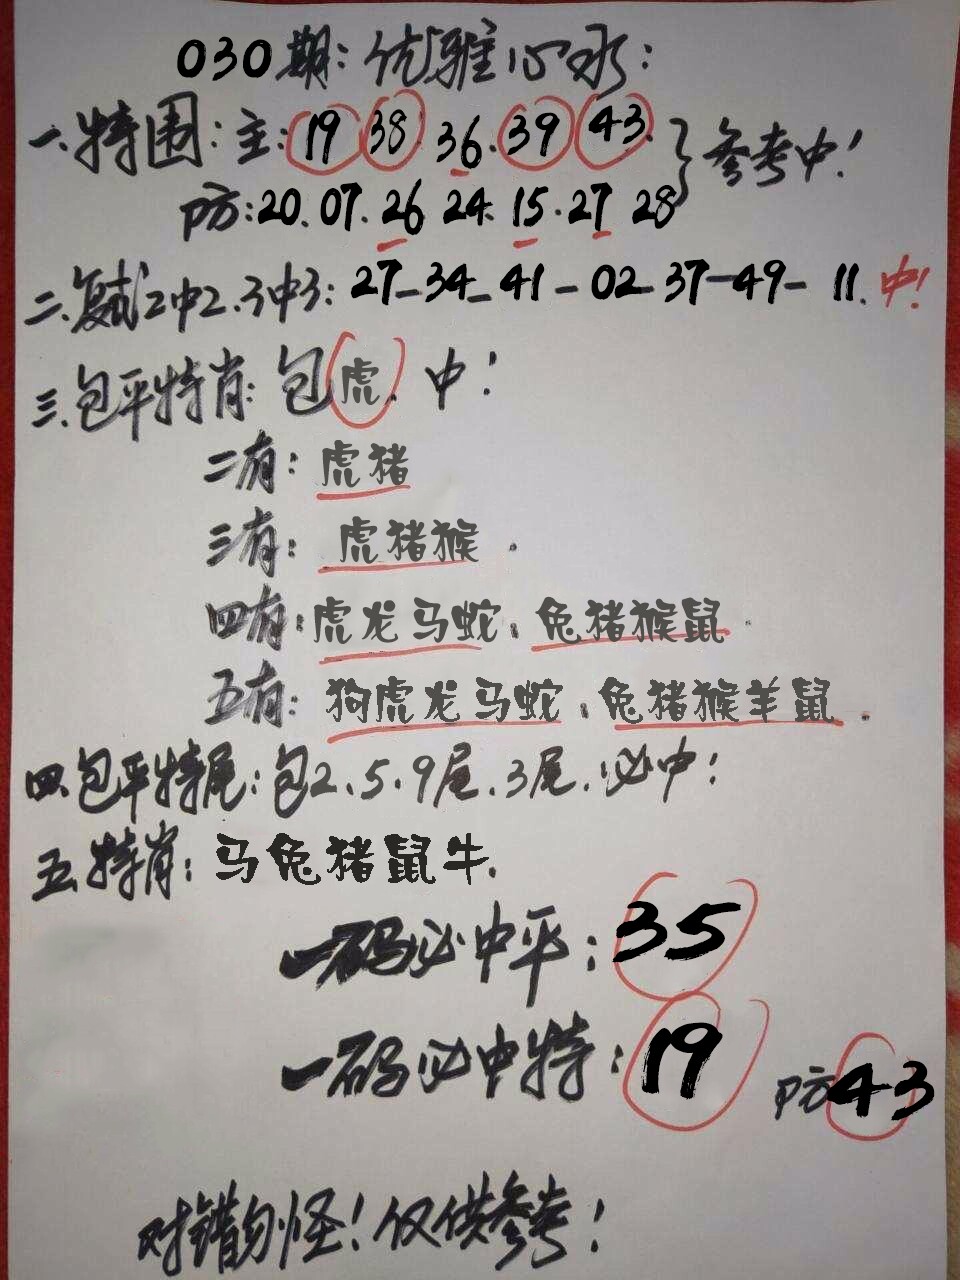 030期:优雅心水:
一.特围:主:19 38 36.39 43.}参考中!
防:20.07.26 24.15.27 28
二.复式2中2.3中3:27-34-41-02-37-49-11.中!
三.包平特肖:包虎.中!
二有:虎猪
三有:虎猪猴.
四有:虎龙马蛇.兔猪猴鼠.
五有:狗虎龙马蛇.兔猪猴羊鼠.
四.包平特尾:包2.5.9尾.3尾.必中!
五.特肖:马兔猪鼠牛.
一码必中平:35
一码必中特:19 防43
对错勿怪!仅供参考!